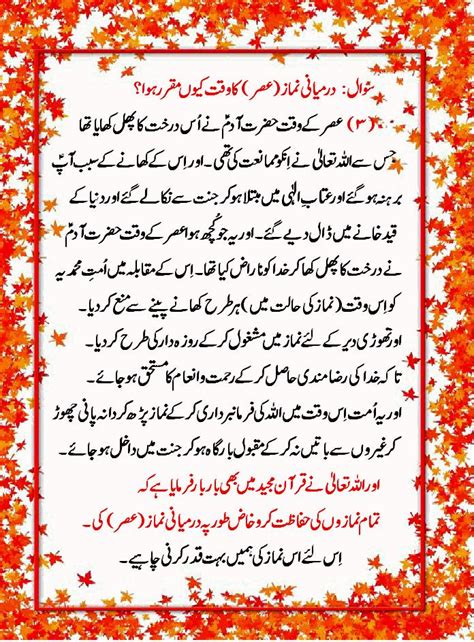 سوال: درمیانی نماز (عصر) کا وقت کیوں مقرر ہوا؟
(۳) عصر کے وقت حضرت آدمؑ نے اُس درخت کا پھل کھایا تھا
جس سے اللہ تعالیٰ نے اِنکو ممانعت کی تھی۔ اور اِس کے کھانے کے سبب آپؑ
برہنہ ہو گئے اور عتابِ الٰہی میں مبتلا ہو کر جنت سے نکالے گئے اور دنیا کے
قید خانے میں ڈال دیے گئے۔ اور یہ جو کُچھ ہوا عصر کے وقت حضرت آدمؑ
نے درخت کا پھل کھا کر خدا کو ناراض کیا تھا۔ اِس کے مقابلہ میں اُمتِ محمدیہ
کو اِس وقت (نماز کی حالت میں) ہر طرح کھانے پینے سے منع کر دیا۔
اور تھوڑی دیر کے لئے نماز میں مشغول کر کے روزہ دار کی طرح کر دیا۔
تا کہ خدا کی رضا مندی حاصل کر کے رحمت و انعام کا مستحق ہو جائے۔
اور یہ اُمت اِس وقت میں اللہ کی فرمانبرداری کر کے نماز پڑھ کر دانہ پانی چھوڑ
کر غیروں سے باتیں نہ کر کے مقبول بارگاہ ہو کر جنت میں داخل ہو جائے۔
اور اللہ تعالیٰ نے قرآن مجید میں بھی بار بار فرمایا ہے کہ
تمام نمازوں کی حفاظت کرو خاص طور پہ درمیانی نماز (عصر) کی۔
اِس لئے اس نماز کی ہمیں بہت قدر کرنی چاہیے۔